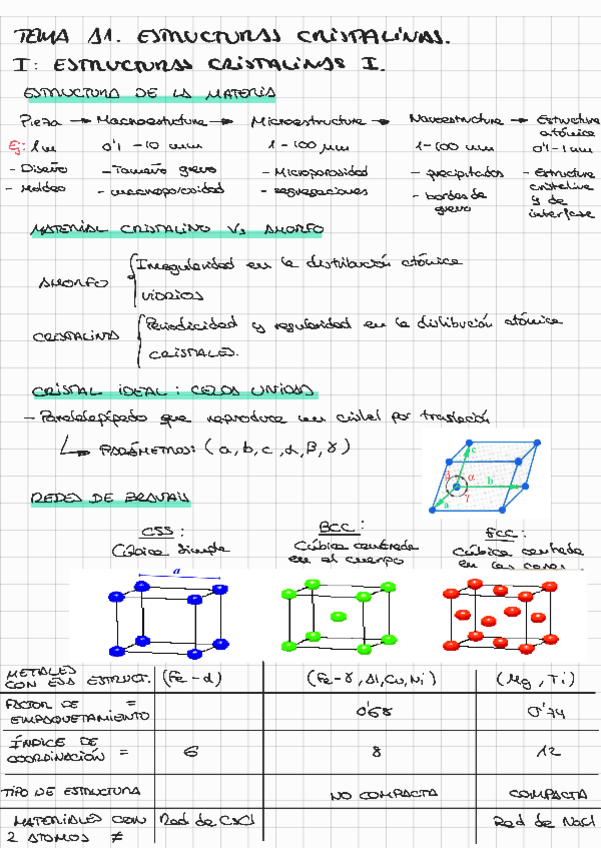 TEMA 11. ESTRUCTURAS CRISTALINAS.
I: ESTRUCTURAS CRISTALINAS I.
ESTRUCTURA DE LA MATERIA
Pieza → Macroestructura → Microestructura → Nanoestructura → Estructura atómica
Ej: 1m 0'1 - 10 mm 1 - 100 μm 1 - 100 nm 0'1 - 1 nm
- Diseño - Tamaño grano - Microporosidad - precipitados - Estructura cristalina y de interfase
- Moldeo - macroporosidad - segregaciones - bordes de grano
MATERIAL CRISTALINO VS AMORFO
AMORFO { Irregularidad en la distribución atómica
VIDRIOS
CRISTALINO { Periodicidad y regularidad en la distibución atómica
CRISTALES.
CRISTAL IDEAL: CELDA UNIDAD
- Paralelepípedo que reproduce un cristal por traslación
↳ PARÁMETROS: (a, b, c, α, β, γ)
c
α
b
a
γ
REDES DE BRAVAIS
CSS: BCC: FCC:
Cúbica simple Cúbica centrada en el cuerpo Cúbica centrada en las caras.
a
METALES CON ESA ESTRUCT. (Fe-α) (Fe-γ, Al, Cu, Ni) (Mg, Ti)
FACTOR DE EMPAQUETAMIENTO = 0'68 0'74
ÍNDICE DE COORDINACIÓN = 6 8 12
TIPO DE ESTRUCTURA NO COMPACTA COMPACTA
MATERIALES CON 2 ATOMOS ≠ Red de CsCl Red de NaCl